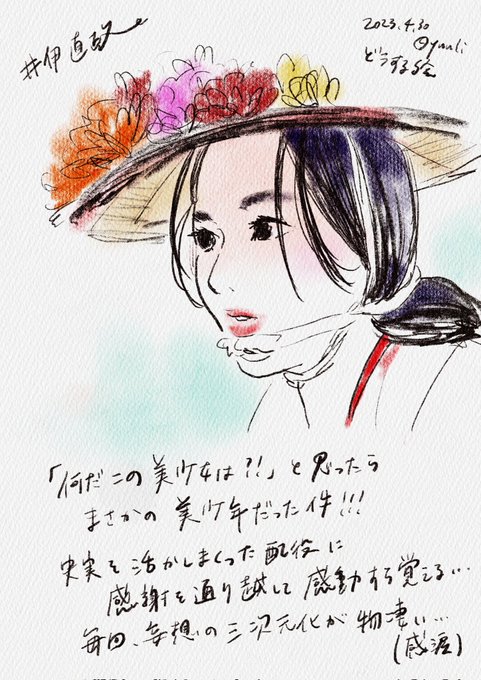 井伊直政
2023.4.30
@yuuli
どうする絵
「何だこの美少女は?!」と思ったら
まさかの美少年だった件!!!
史実を活かしまくった配役に
感謝を通り越して感動すら覚える…
毎回、妄想の三次元化が物凄い…
(感涙)